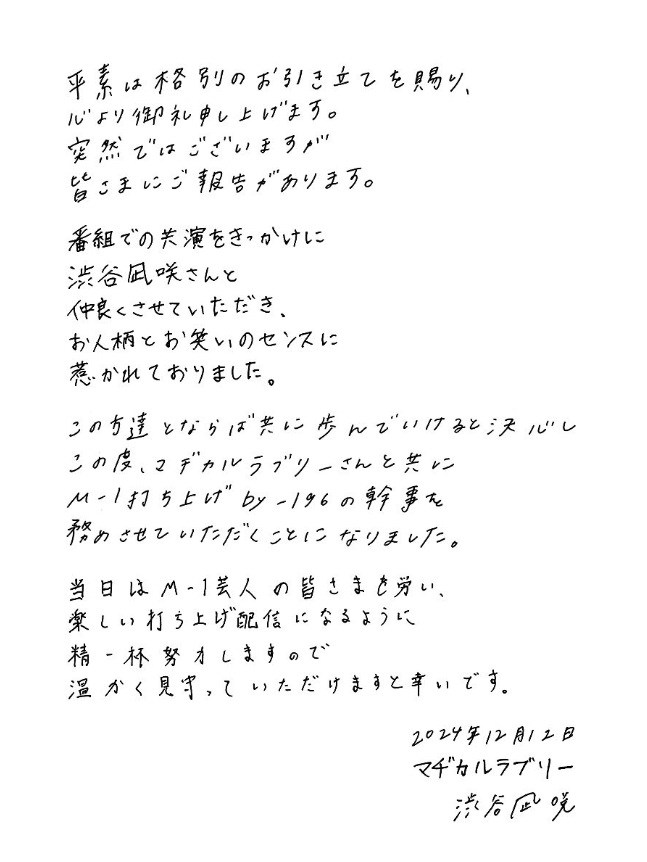 平素は格別のお引き立てを賜り、
心より御礼申し上げます。
突然ではございますが
皆さまにご報告があります。
番組での共演をきっかけに
渋谷凪咲さんと
仲良くさせていただき、
お人柄とお笑いのセンスに
惹かれておりました。
この方達とならば共に歩んでいけると決心し
この度、マヂカルラブリーさんと共に
M-1打ち上げby-196の幹事を
務めさせていただくことになりました。
当日はM-1芸人の皆さまを労い、
楽しい打ち上げ配信になるように
精一杯努力しますので
温かく見守っていただけますと幸いです。
2024年12月12日
マヂカルラブリー
渋谷凪咲